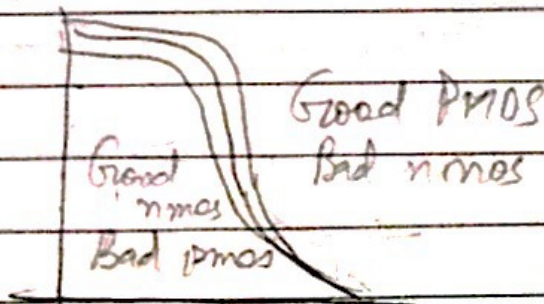 Good PMOS
Bad nmos
Good
nmos
Bad pmos